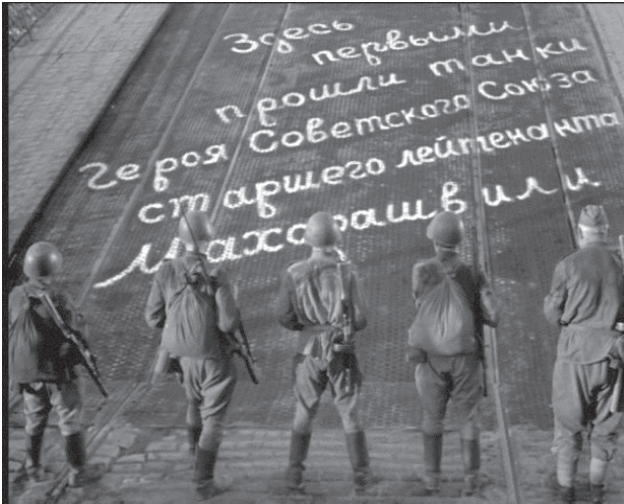 Здесь первыми
прошли танки
Героя Советского Союза
старшего лейтенанта
Махарашвили